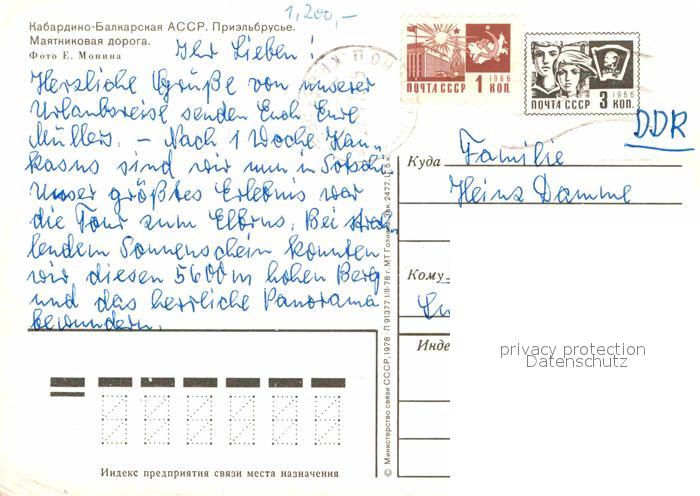 1,200,-
Кабардино-Балкарская АССР. Приэльбрусье.
Маятниковая дорога.
Фото Е. Монина
Ihr Lieben!
Herzliche Grüße von unserer
Urlaubsreise senden Euch Eure
Müllers. – Nach 1 Woche Kau-
kasus sind wir nun in Sotschi.
Unser größtes Erlebnis war
die Tour zum Elbrus. Bei strah-
lendem Sonnenschein konnten
wir diesen 5600 m hohen Berg
und das herrliche Panorama
bewundern.
1966
ПОЧТА СССР 1 КОП.
1966
ПОЧТА СССР 3 КОП.
DDR
Куда Familie
Heinz Damme
Кому
Инде
privacy protection
Datenschutz
© Министерство связи СССР, 1978
Индекс предприятия связи места назначения